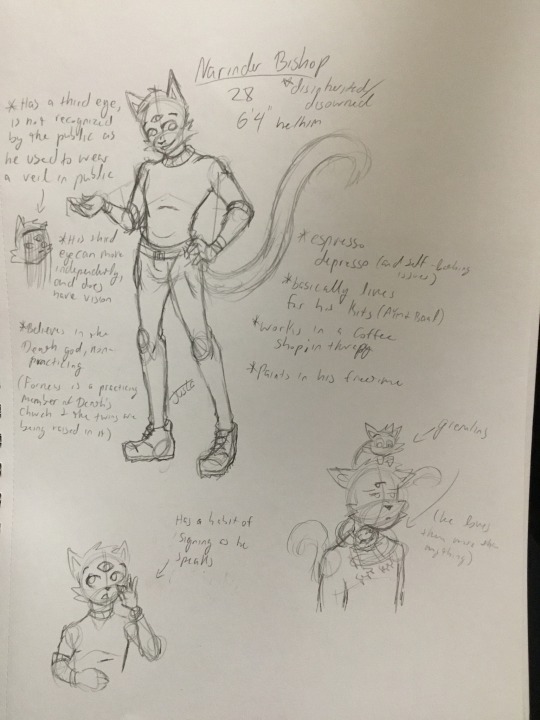 Narinder Bishop
28
*disinherited/
disowned
6'4" he/him
*Has a third eye,
is not recognized
by the public as
he used to wear
a veil in public
*His third
eye can move
independently,
and does
have vision
*Believes in the
Death god, non-
practicing
(Forneus is a practicing
member of Death's
Church & the twins are
being raised in it)
*espresso
depresso (and self-loathing
issues)
*basically lives
for his kits (Aim & Baal)
*works in a coffee
shop, in therapy
*Paints in his freetime
gremlins
(he loves
them more than
anything)
Has a habit of
signing as he
speaks